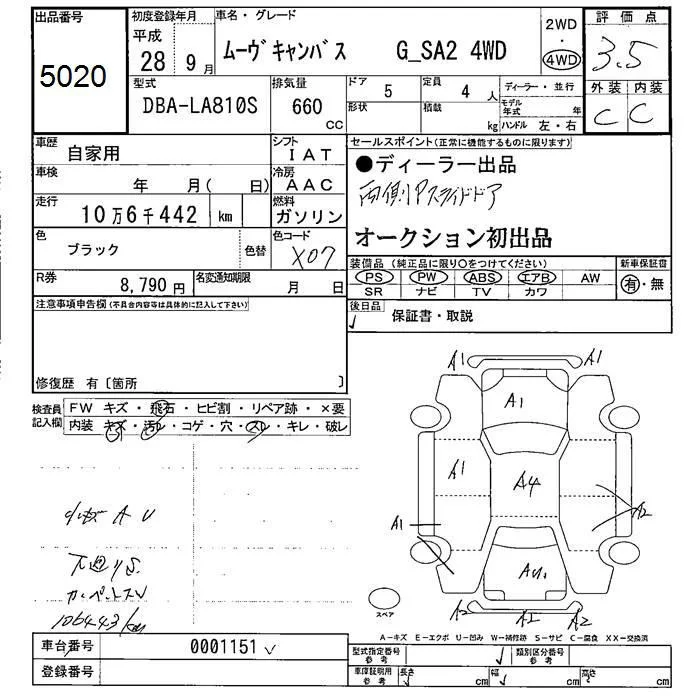 出品番号 初度登録年月 車名・グレード 2WD 評価点
平成 28年 9月 ムーヴキャンバス G_SA2 4WD ・ 4WD 3.5
5020
型式 排気量 ドア 定員 ディーラー・並行 外装 内装
DBA-LA810S 660 CC 5 4 人 C C
形状 積載 kg モデル年式 年
ハンドル 左・右
車歴 自家用 シフト IAT セールスポイント(正常に機能するものに限ります)
●ディーラー出品
車検 年 月( 日) 冷房 AAC
両側Pスライドドア
走行 10万6千442 km 燃料 ガソリン
オークション初出品
色 ブラック 色替 色コード X07
装備品(純正品に限り○をつけてください) 新車保証書
PS PW ABS エアB AW 有・無
SR ナビ TV カワ
R券 8,790円 名変通知期限 月 日
後日品 保証書・取説
注意事項申告欄(不具合内容等は具体的に記入して下さい)
修復歴 有〔箇所 〕
検査員記入欄 FW キズ・飛石・ヒビ割・リペア跡・×要
内装 キズ・汚レ・コゲ・穴・スレ・キレ・破レ
A1 A1
A1
A1
A4
A1 A2
A2 A1 A2
小キズ A U
下廻りS
カーペットスレ
106443km
スペア
A-キズ E-エクボ U-凹み W-補修跡 S-サビ C-腐食 XX-交換済
車台番号 0001151
登録番号
型式指定番号 参考 類別区分番号 参考
車庫証明用 参考 長さ cm 幅 cm 高さ cm